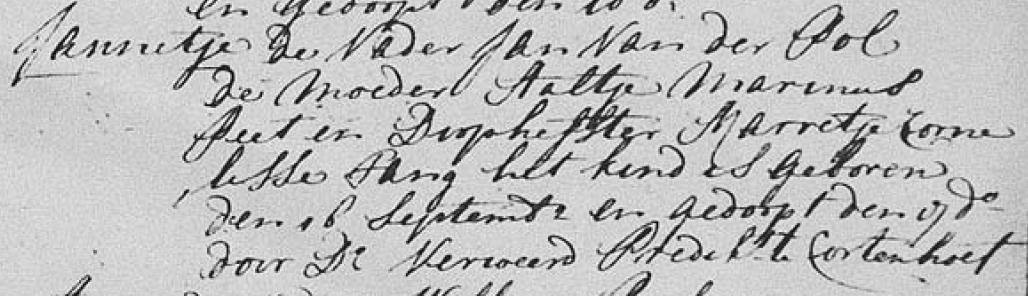 en gedoopt den 10 d:
Jannetje De Vader Jan Van der Pol
De Moeder Aaltje Marinus
Peet en Doophefster Marretje Corne
lisse Lang het kind is geboren
den 16 Septembr en gedoopt den 17 do
door Ds Verweerd Predikt te Cortenhoef